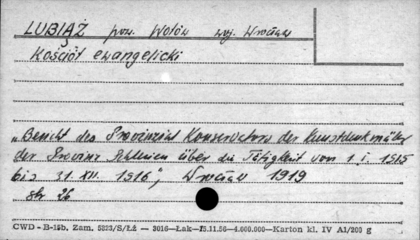 LUBIĄŻ pow. Wołów woj. Wrocław
Kościół ewangelicki
"Bericht des Provinzial Konservators der Kunstdenkmäler
der Provinz Schlesien über die Tätigkeit von 1. I. 1915
bis 31. XII. 1916", Wrocław 1919
str 26
CWD - B-15b, Zam. 5323/S/Łż — 3016—Łak—15.11.56—4.000.000—Karton kl. IV A1/200 g